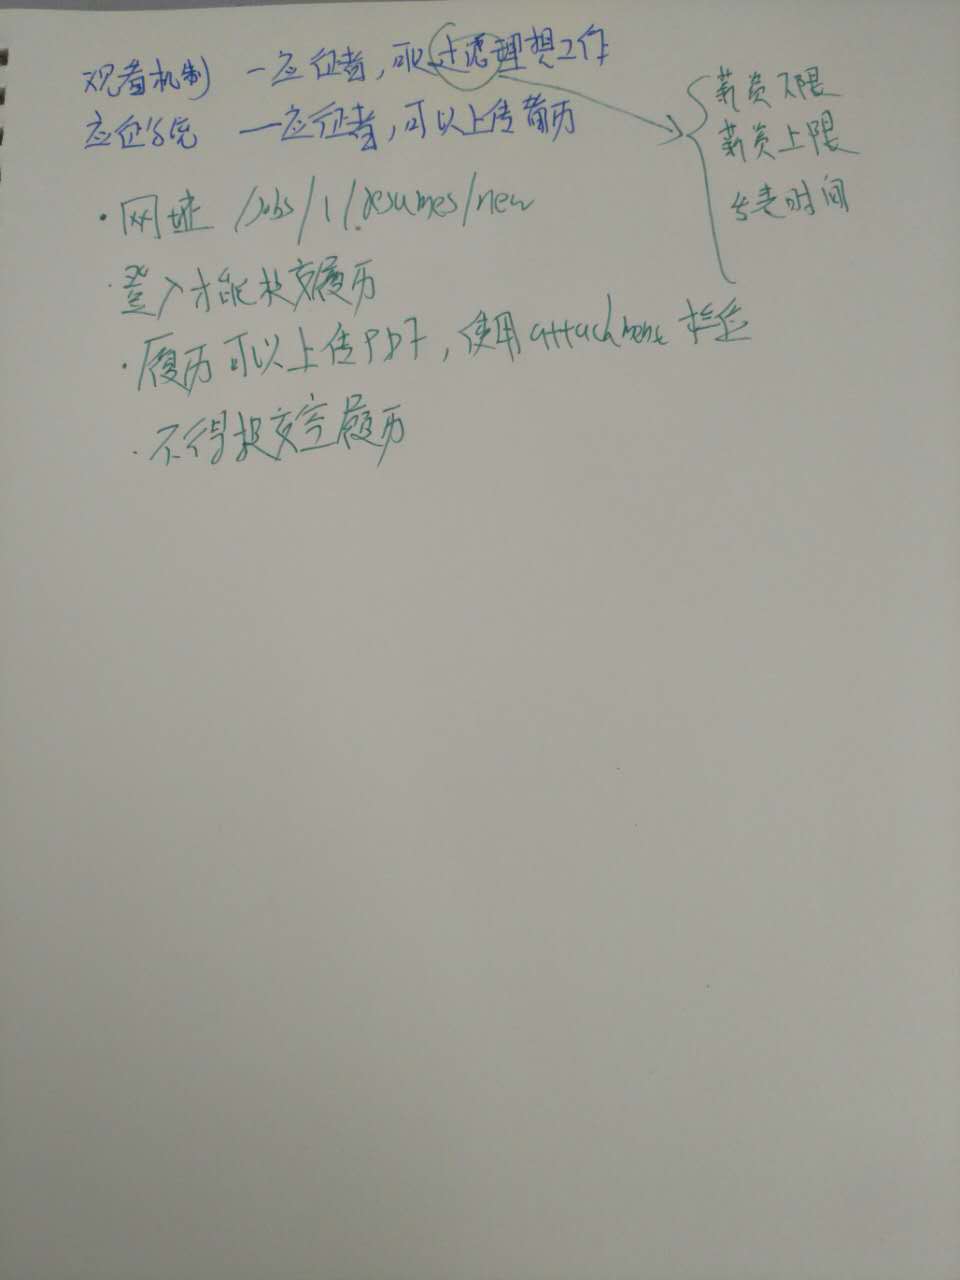 观看机制 一应征者，可以过滤理想工作
应征系统 一应征者，可以上传简历
薪资下限
薪资上限
发表时间
· 网址 /jobs/1/resumes/new
· 登入才能提交履历
· 履历可以上传PDF，使用attachment栏位
· 不得提交空履历